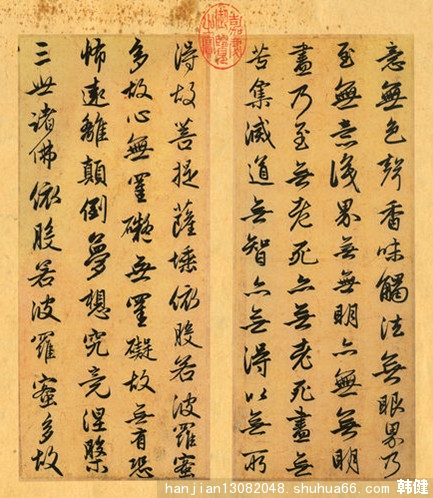 意無色聲香味觸法無眼界乃
至無意識界無無明亦無無明
盡乃至無老死亦無老死盡無
苦集滅道無智亦無得以無所
得故菩提薩埵依般若波羅蜜
多故心無罣礙無罣礙故無有恐
怖遠離顛倒夢想究竟涅槃
三世諸佛依般若波羅蜜多故
hanjian13082048. shuhua66. com 韩健